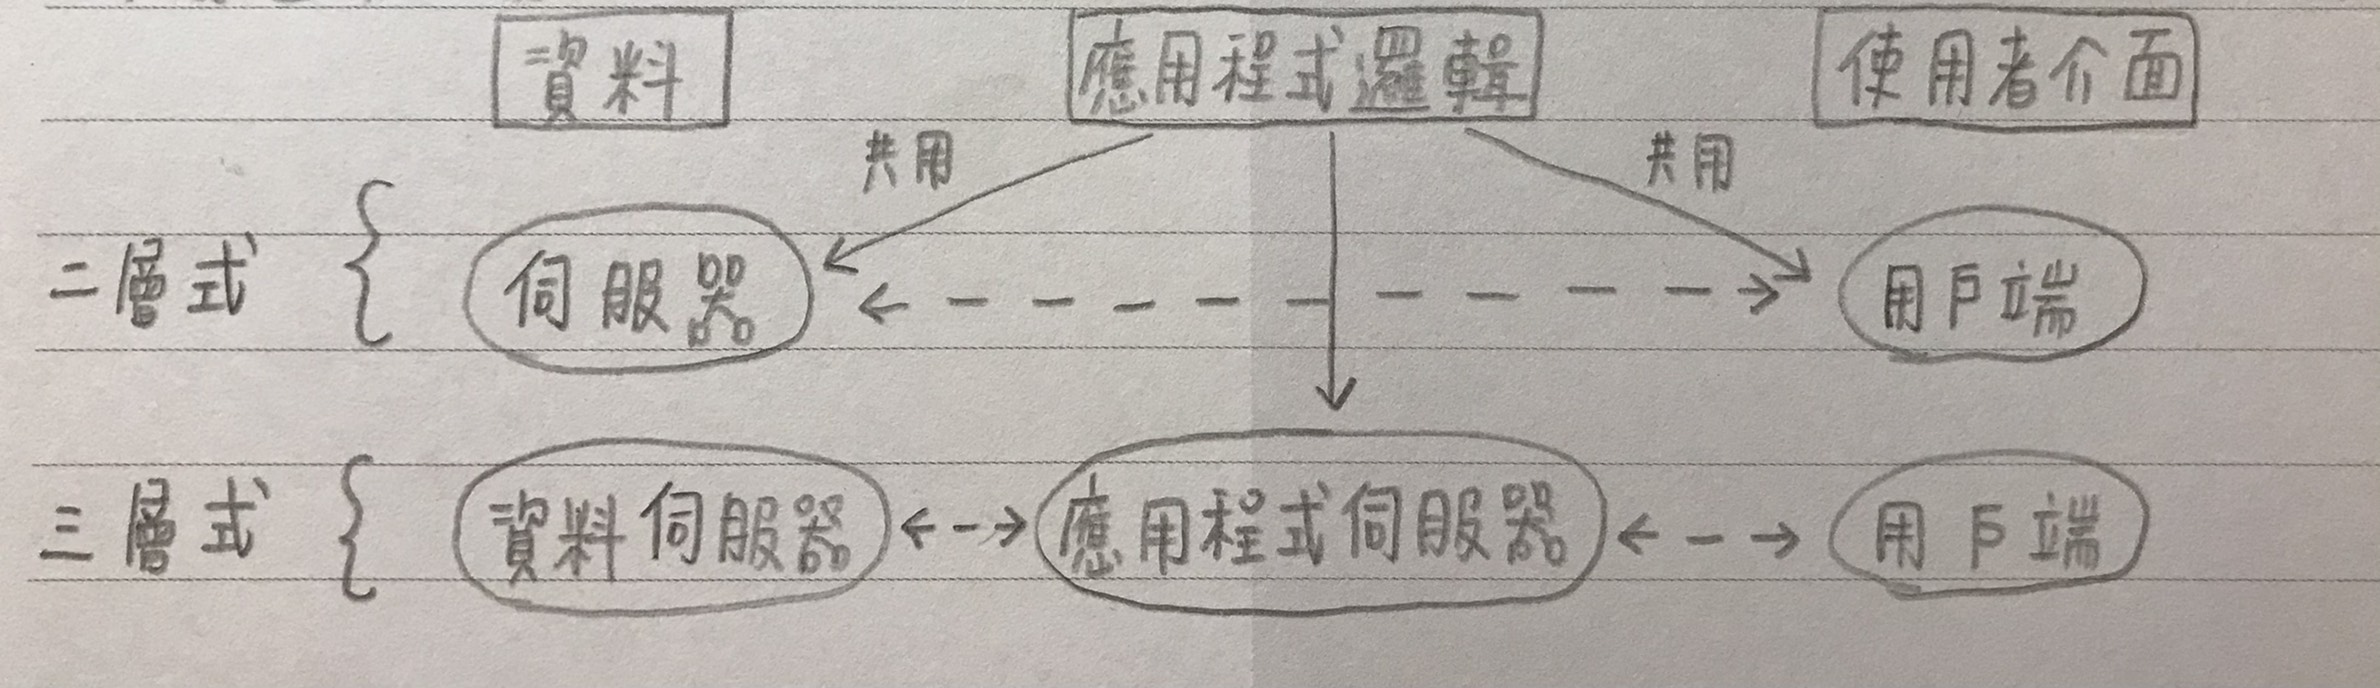 資料 應用程式邏輯 使用者介面
共用 共用
二層式 伺服器 用戶端
三層式 資料伺服器 應用程式伺服器 用戶端